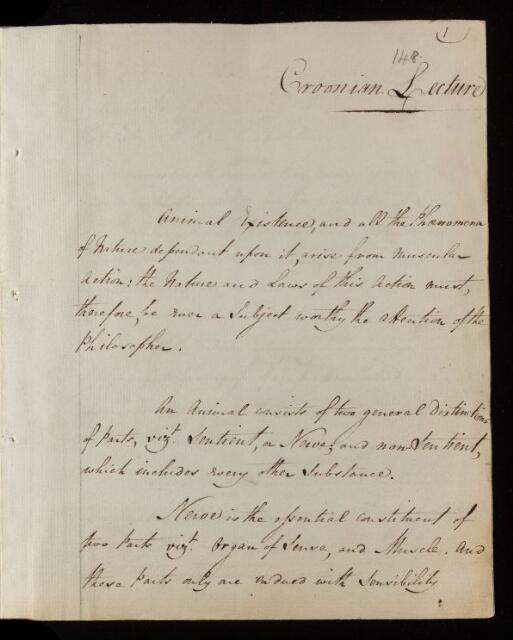 1
148.
Croonian Lecture
Animal Existence, and all the Phænomena
of Nature dependant upon it, arise from muscular
Action: the Nature and Laws of this Action must,
therefore, be ever a Subject worthy the attention of the
Philosopher.
An Animal consists of two general distinctions
of Parts, vizt. Sentient, or Nerve; and non Sentient,
which includes every other Substance.
Nerve is the essential constituent of
two Parts vizt. Organ of Sense, and Muscle. And
these Parts only are endued with Sensibility